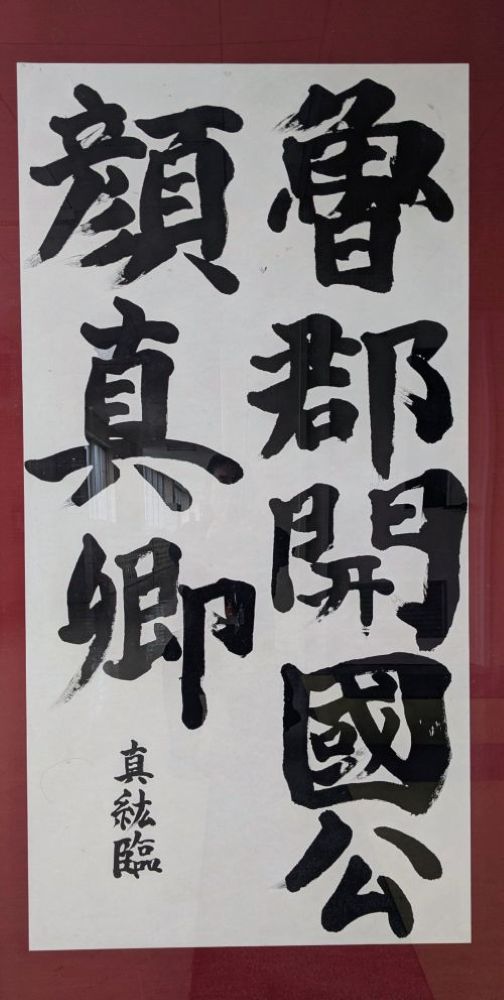 魯郡開國公
顔真卿
真紘臨